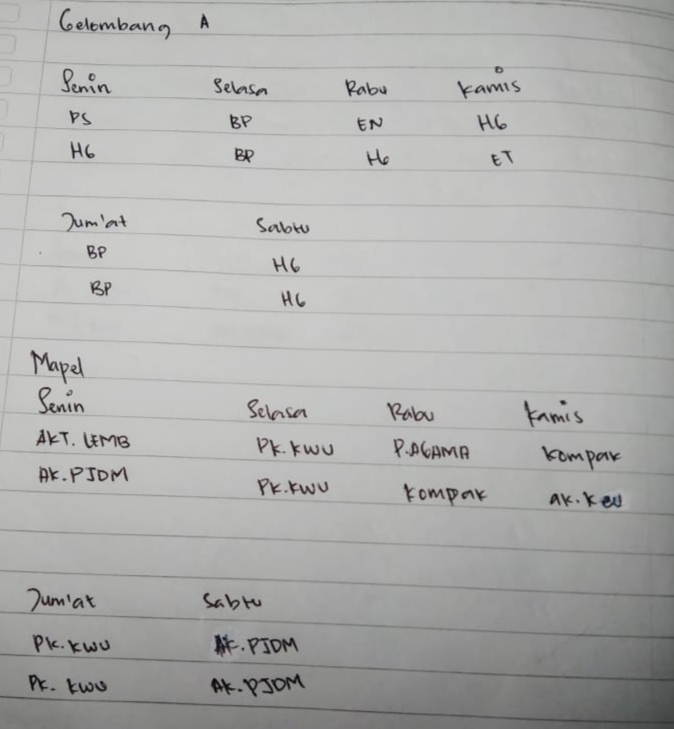 Gelombang A
Senin Selasa Rabu Kamis
PS BP EN H6
H6 BP H6 ET
Jum'at Sabtu
BP H6
BP H6
Mapel
Senin Selasa Rabu Kamis
AKT. LEMB PK.KWU P.AGAMA kompak
AK.PJDM PK.KWU kompak AK.Keu
Jum'at Sabtu
PK.KWU AK.PJDM
PK. KWU AK.PJDM